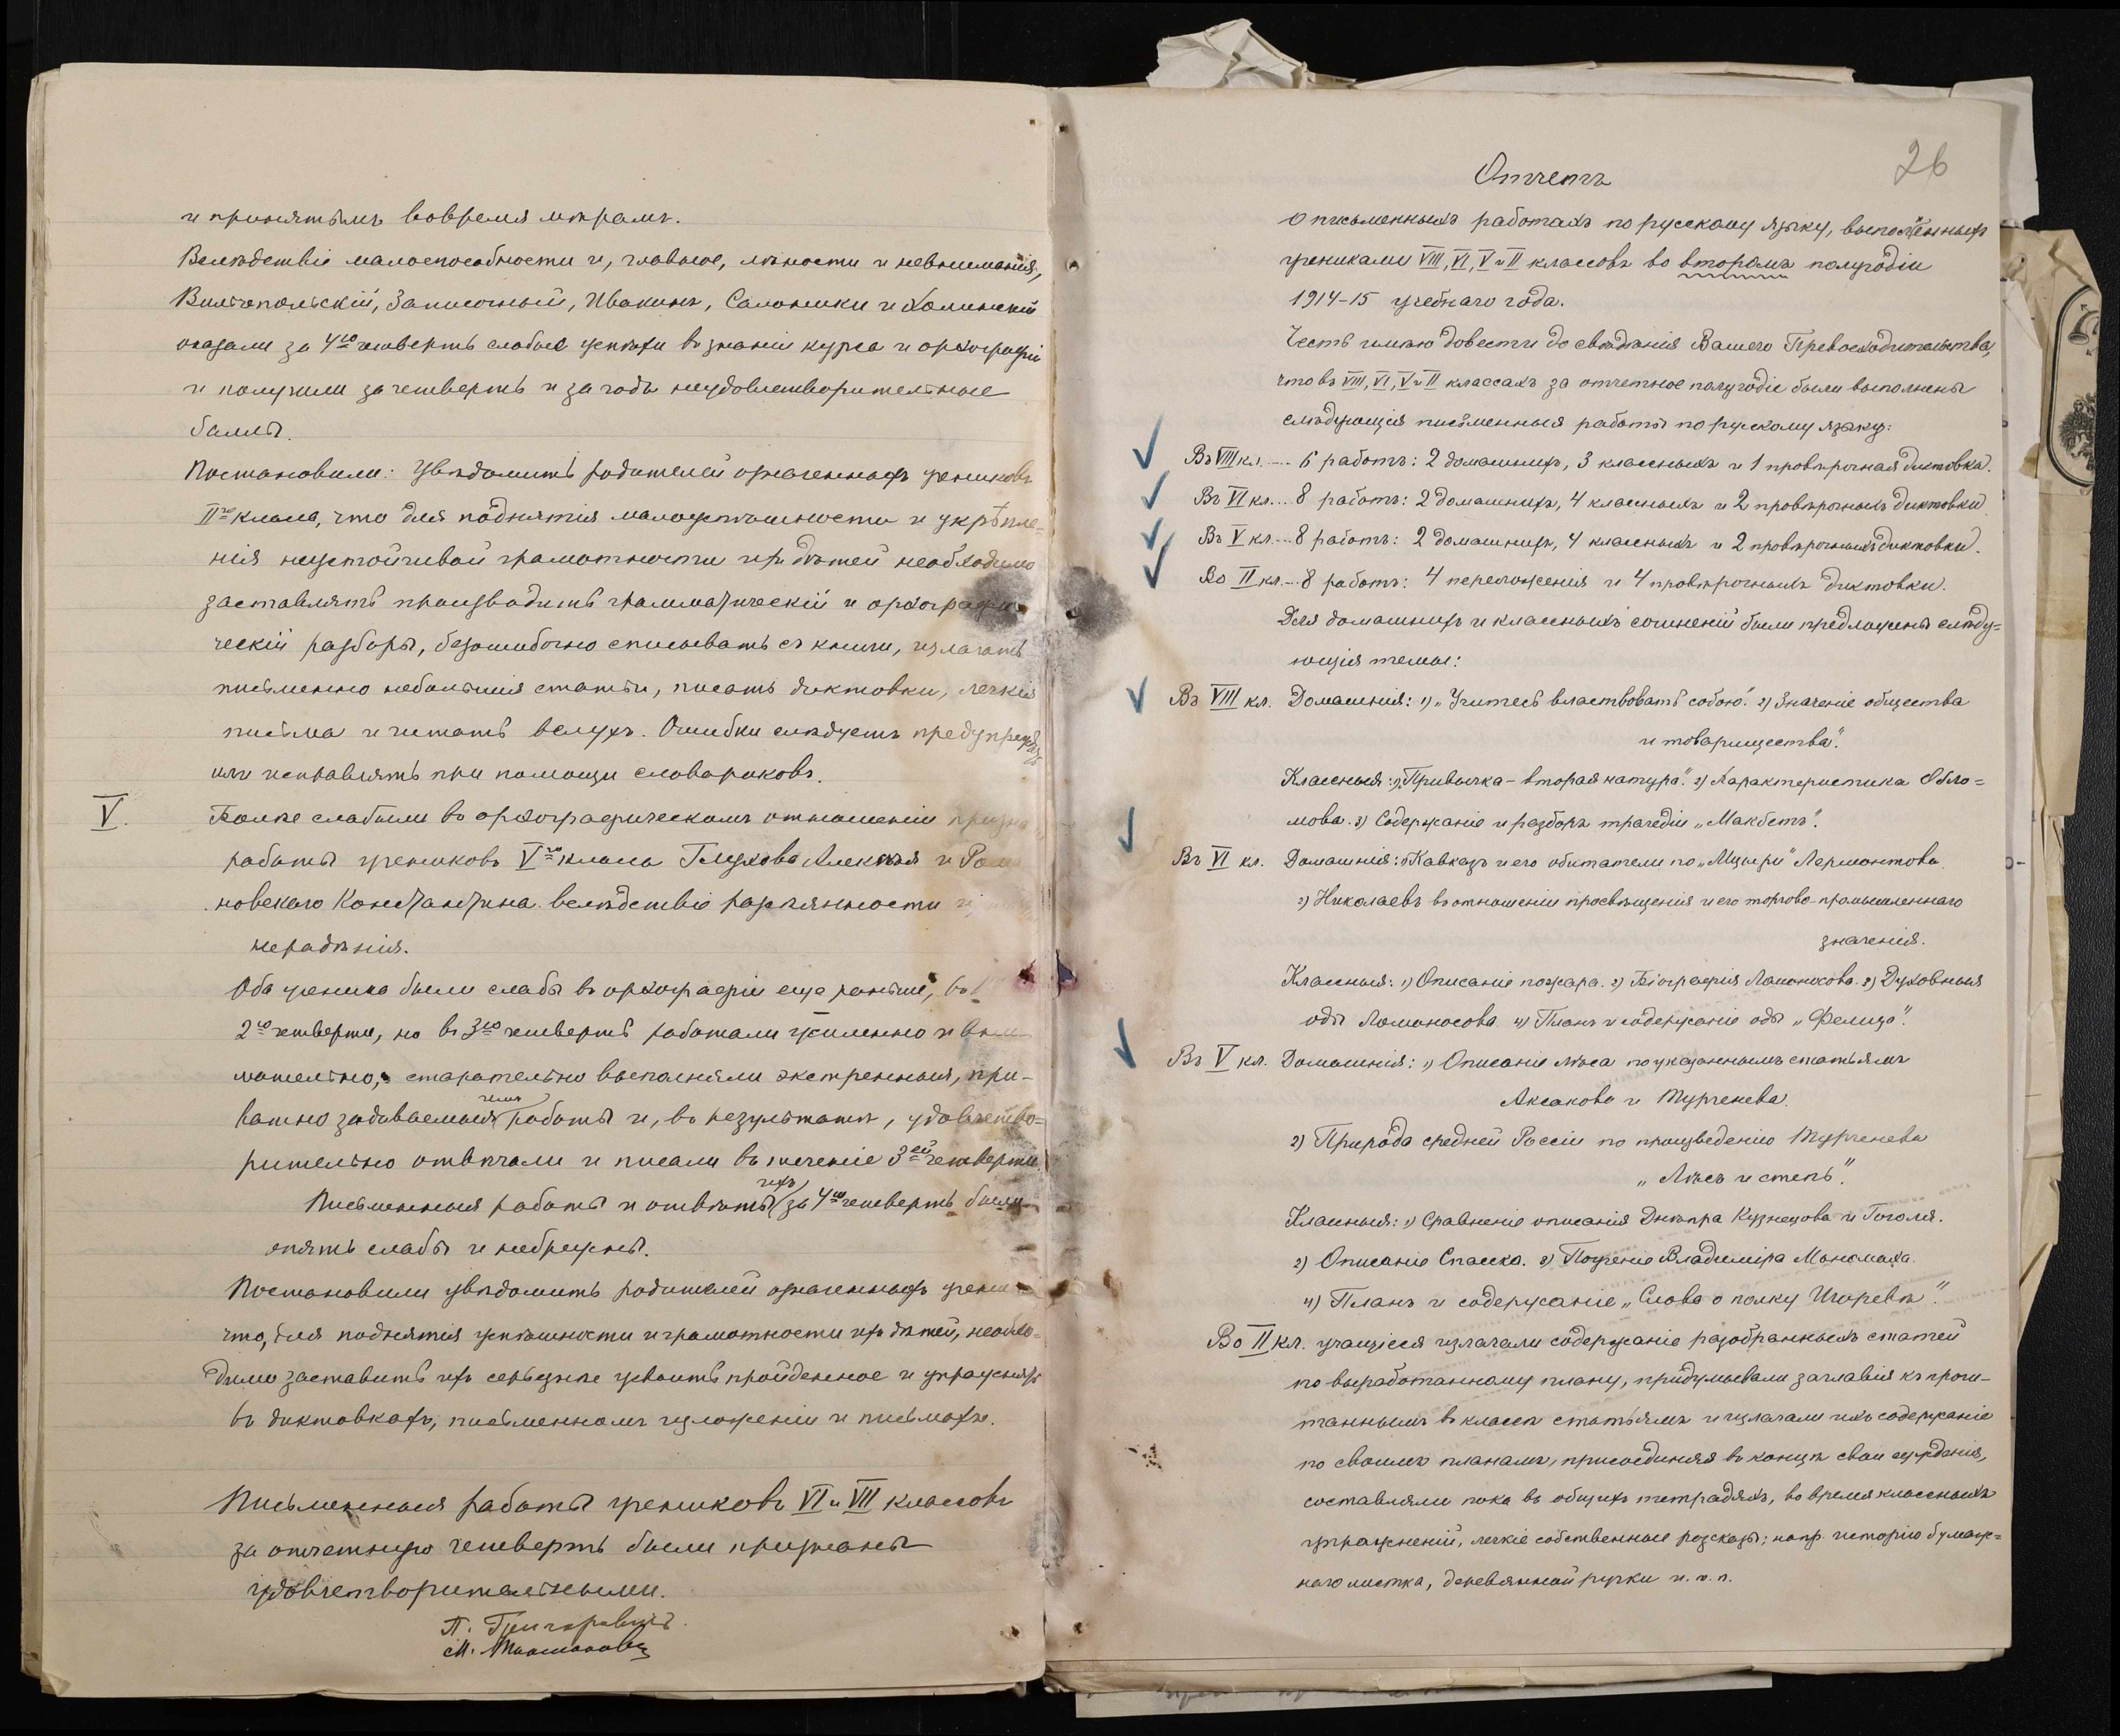 и принятымъ вовремя мѣрамъ.
Вслѣдствіе малоспособности и, главное, лѣности и невниманія,
Вильгопольскій, Записочный, Ивакинъ, Салоники и Холинскій
оказали за 4ую четверть слабые успѣхи въ знаніи курса и орѳографіи
и получили за четверть и за годъ неудовлетворительные
баллы.
Постановили: увѣдомить родителей означенныхъ учениковъ
IIго класса, что для поднятія малоуспѣшности и укрѣпле-
нія неустойчивой грамотности ихъ дѣтей необходимо
заставлять производить грамматическій и орѳографи-
ческій разборы, безошибочно списывать съ книги, излагать
письменно небольшія статьи, писать диктовки, легкія
письма и читать вслухъ. Ошибки слѣдуетъ предупреждать
или исправлять при помощи словариковъ.
V. Болѣе слабыми въ орѳографическомъ отношеніи
работы учениковъ Vго класса Глухова Алексѣя и
новскаго Константина вслѣдствіе разсѣянности и
нерадѣнія.
Оба ученика были слабы въ орѳографіи еще раньше, во
2ую четверть, но въ 3ью четверть работали усиленно и вни-
мательно, старательно выполняли экстренныя, при-
ватно задаваемыя имъ работы и, въ результатѣ, удовлетво-
рительно отвѣчали и писали въ теченіе 3ей четверти.
Письменныя работы и отвѣты ихъ за 4ую четверть были
опять слабы и небрежны.
Постановили увѣдомить родителей означенныхъ
что, для поднятія успѣшности и грамотности ихъ дѣтей, необхо-
димо заставить ихъ серьезнѣе усвоить пройденное и упражнять
въ диктовкахъ, письменномъ изложеніи и письмахъ.
Письменныя работы учениковъ VI и VII классовъ
за отчетную четверть были признаны
удовлетворительными.
П. Григоровичъ.
М.
26
Отчетъ
о письменныхъ работахъ по русскому языку, выполненныхъ
учениками VIII, VI, V и II классовъ во второмъ полугодіи
1914-15 учебнаго года.
Честь имѣю довести до свѣдѣнія Вашего Превосходительства,
что въ VIII, VI, V и II классахъ за отчетное полугодіе были выполнены
слѣдующія письменныя работы по русскому языку:
Въ VIII кл. ... 6 работъ: 2 домашнихъ, 3 классныхъ и 1 провѣрочная диктовка.
Въ VI кл. ... 8 работъ: 2 домашнихъ, 4 классныхъ и 2 провѣрочныхъ диктовки
Въ V кл. ... 8 работъ: 2 домашнихъ, 4 классныхъ и 2 провѣрочныхъ диктовки.
Во II кл. ... 8 работъ: 4 переложенія и 4 провѣрочныхъ диктовки.
Для домашнихъ и классныхъ сочиненій были предложены слѣду=
ющія темы:
Въ VIII кл. Домашнія: 1) „Учитесь властвовать собою". 2) Значеніе общества
и товарищества".
Классныя: 1) „Привычка - вторая натура". 2) Характеристика Обло=
мова. 3) Содержаніе и разборъ трагедіи „Макбетъ".
Въ VI кл. Домашнія: 1) Кавказъ и его обитатели по „Мцыри" Лермонтова
2) Николаевъ въ отношеніи просвѣщенія и его торгово-промышленнаго
значенія.
Классныя: 1) Описаніе пожара. 2) Біографія Ломоносова. 3) Духовныя
оды Ломоносова. 4) Планъ и содержаніе оды „Фелица".
Въ V кл. Домашнія: 1) Описаніе лѣса по указаннымъ статьямъ
Аксакова и Тургенева.
2) Природа средней Россіи по произведенію Тургенева
„Лѣсъ и степь".
Классныя: 1) Сравненіе описанія Днѣпра Кузнецова и Гоголя.
2) Описаніе Спасска. 3) Поученіе Владиміра Мономаха.
4) Планъ и содержаніе „Слова о полку Игоревѣ".
Во II кл. учащіеся излагали содержаніе разобранныхъ статей
по выработанному плану, придумывали заглавія къ прочи-
таннымъ въ классѣ статьямъ и излагали ихъ содержаніе
по своимъ планамъ, присоединяя въ концѣ свои сужденія,
составляли пока въ общихъ тетрадяхъ, во время классныхъ
упражненій, легкіе собственные разсказы; напр. исторію бумаж=
наго листка, деревянной ручки и. т. п.